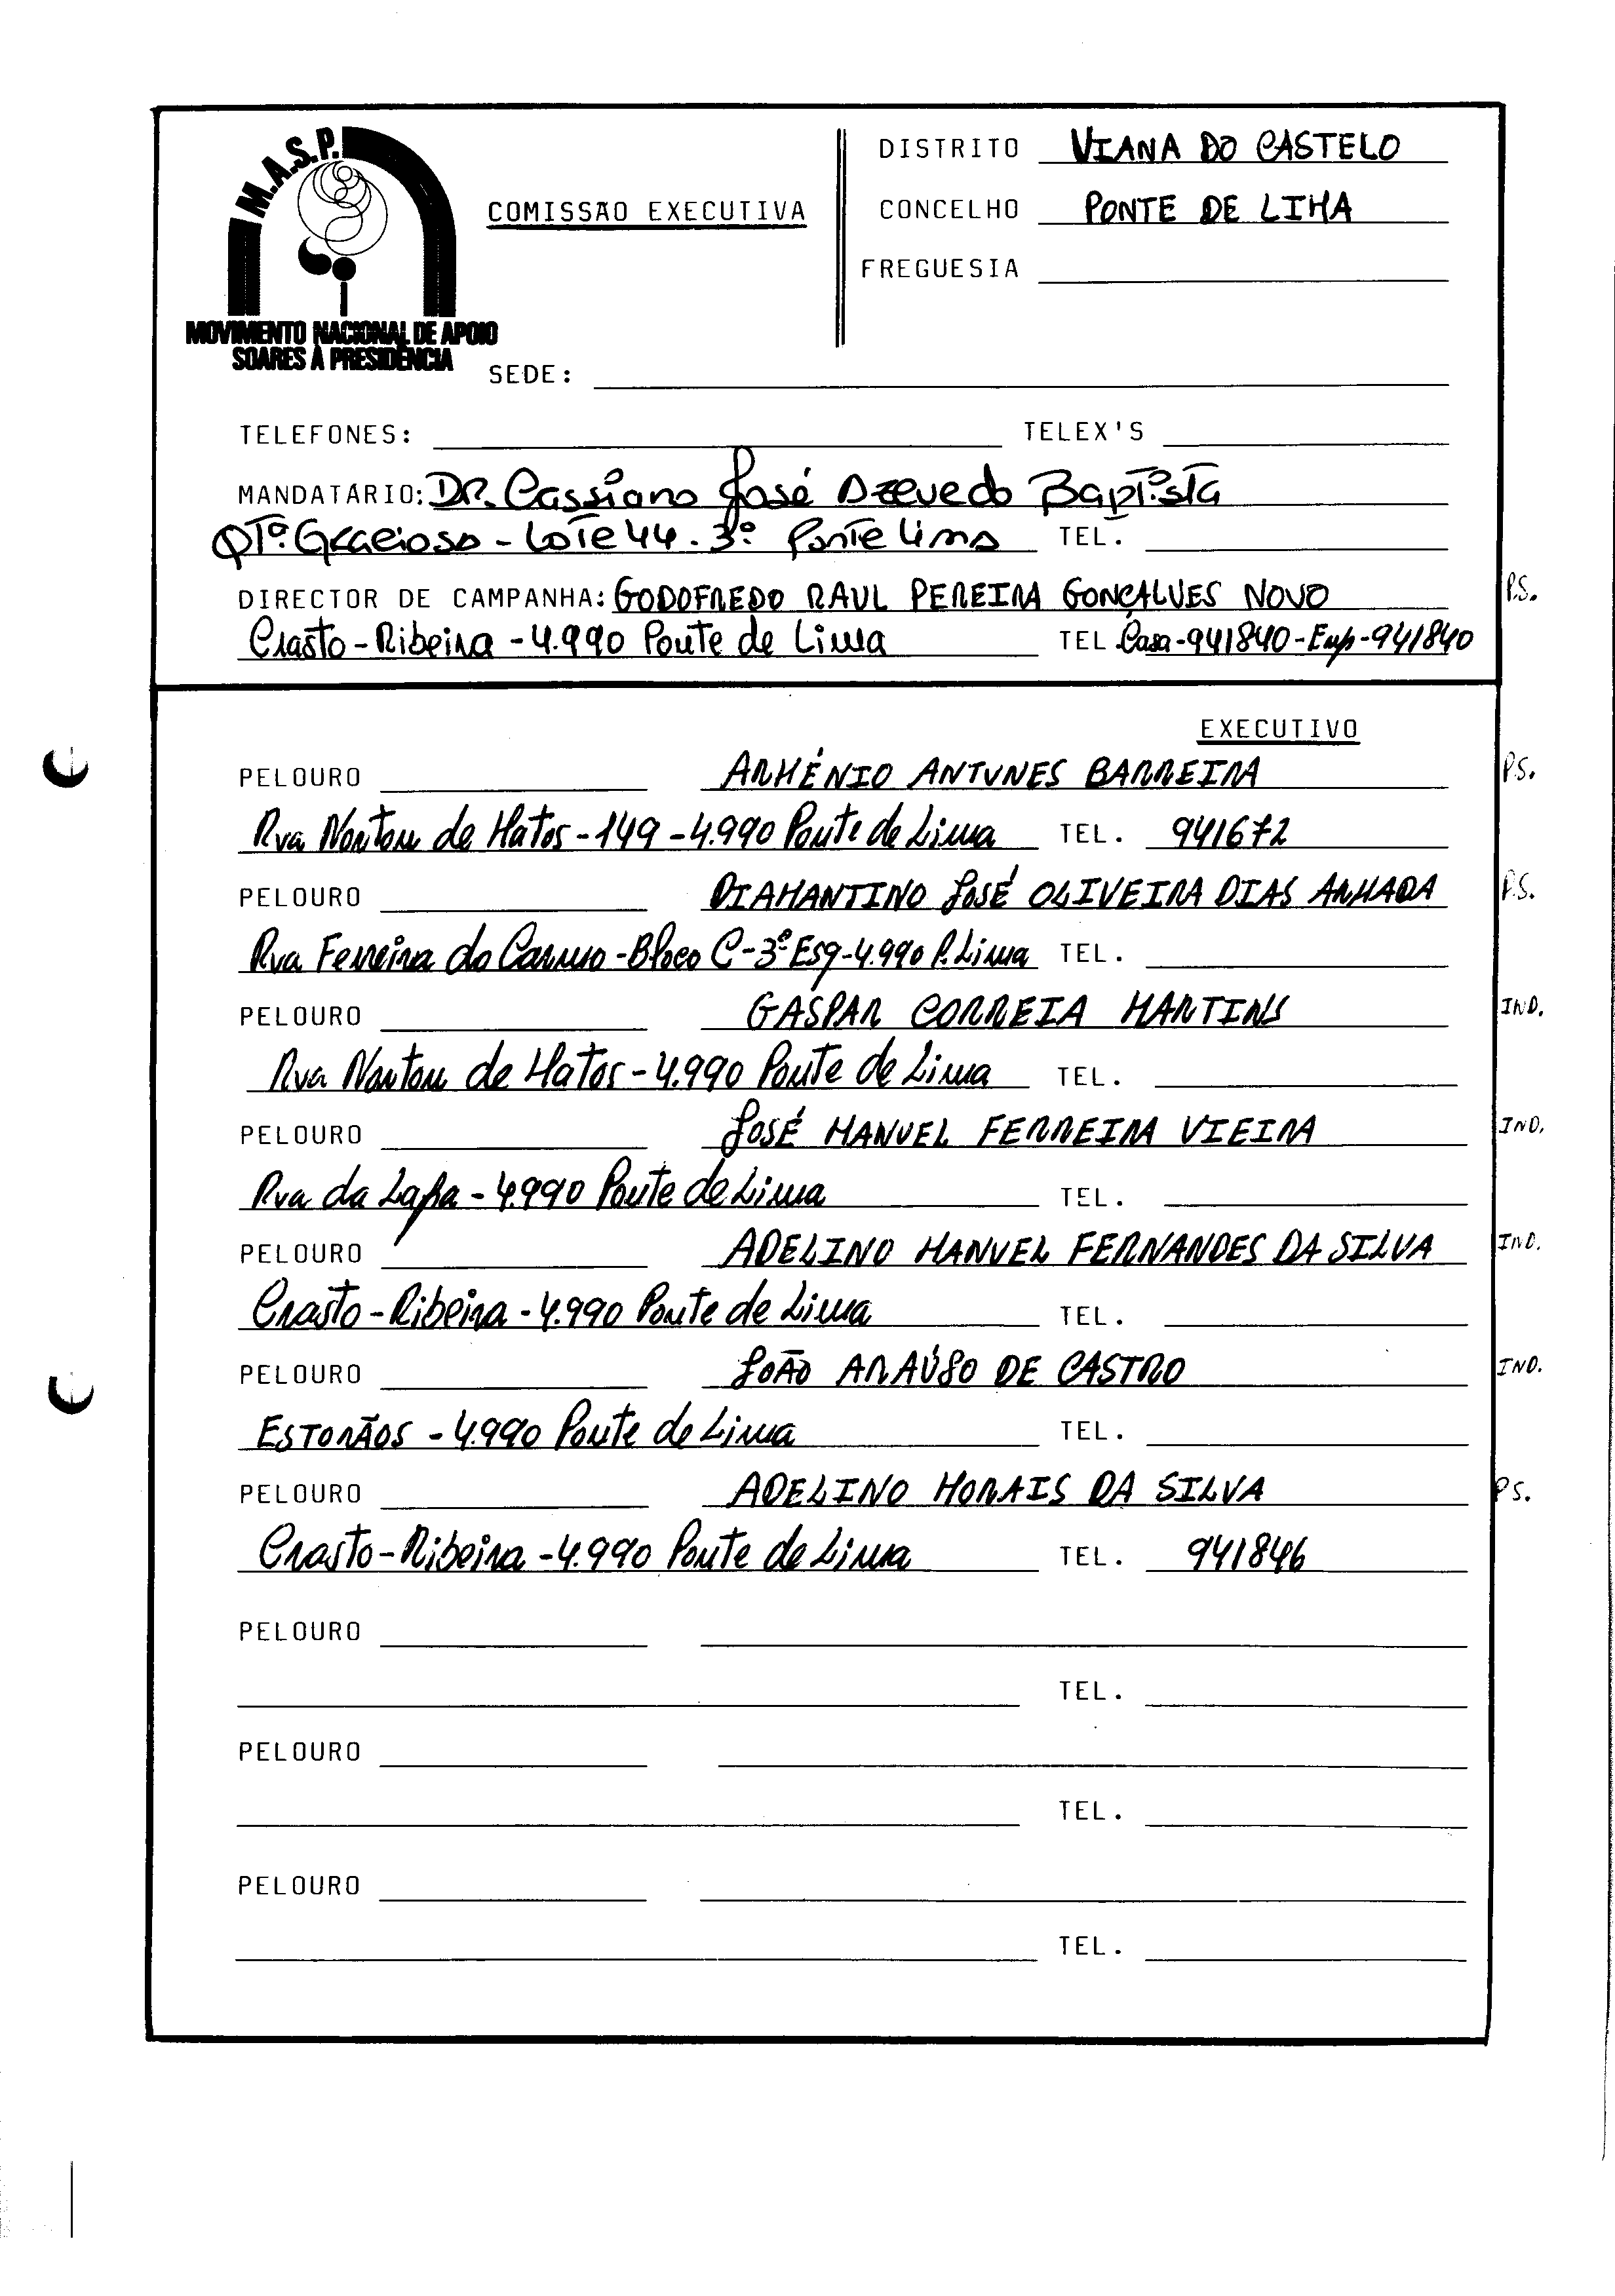 M.A.S.P.
MOVIMENTO NACIONAL DE APOIO
SOARES À PRESIDÊNCIA
COMISSÃO EXECUTIVA
DISTRITO VIANA DO CASTELO
CONCELHO PONTE DE LIMA
FREGUESIA
SEDE:
TELEFONES: TELEX'S
MANDATÁRIO: DR. Cassiano José Azevedo Baptista
QTª. Gracioso - Lote 44 - 3º. Ponte Lima TEL.
DIRECTOR DE CAMPANHA: GODOFREDO RAUL PEREIRA GONÇALVES NOVO P.S.
Crasto - Ribeira - 4.990 Ponte de Lima TEL. Casa-941840-Emp-941840
EXECUTIVO
PELOURO ARMÉNIO ANTUNES BARREIRA P.S.
Rua Norton de Matos - 149 - 4.990 Ponte de Lima TEL. 941672
PELOURO DIAMANTINO JOSÉ OLIVEIRA DIAS ARMADA P.S.
Rua Ferreira do Carmo - Bloco C - 3º Esq - 4.990 P. Lima TEL.
PELOURO GASPAR CORREIA MARTINS IND.
Rua Norton de Matos - 4.990 Ponte de Lima TEL.
PELOURO JOSÉ MANUEL FERREIRA VIEIRA IND.
Rua da Lapa - 4.990 Ponte de Lima TEL.
PELOURO ADELINO MANUEL FERNANDES DA SILVA IND.
Crasto - Ribeira - 4.990 Ponte de Lima TEL.
PELOURO JOÃO ARAÚJO DE CASTRO IND.
ESTORÃOS - 4.990 Ponte de Lima TEL.
PELOURO ADELINO MORAIS DA SILVA P.S.
Crasto - Ribeira - 4.990 Ponte de Lima TEL. 941846
PELOURO
TEL.
PELOURO
TEL.
PELOURO
TEL.